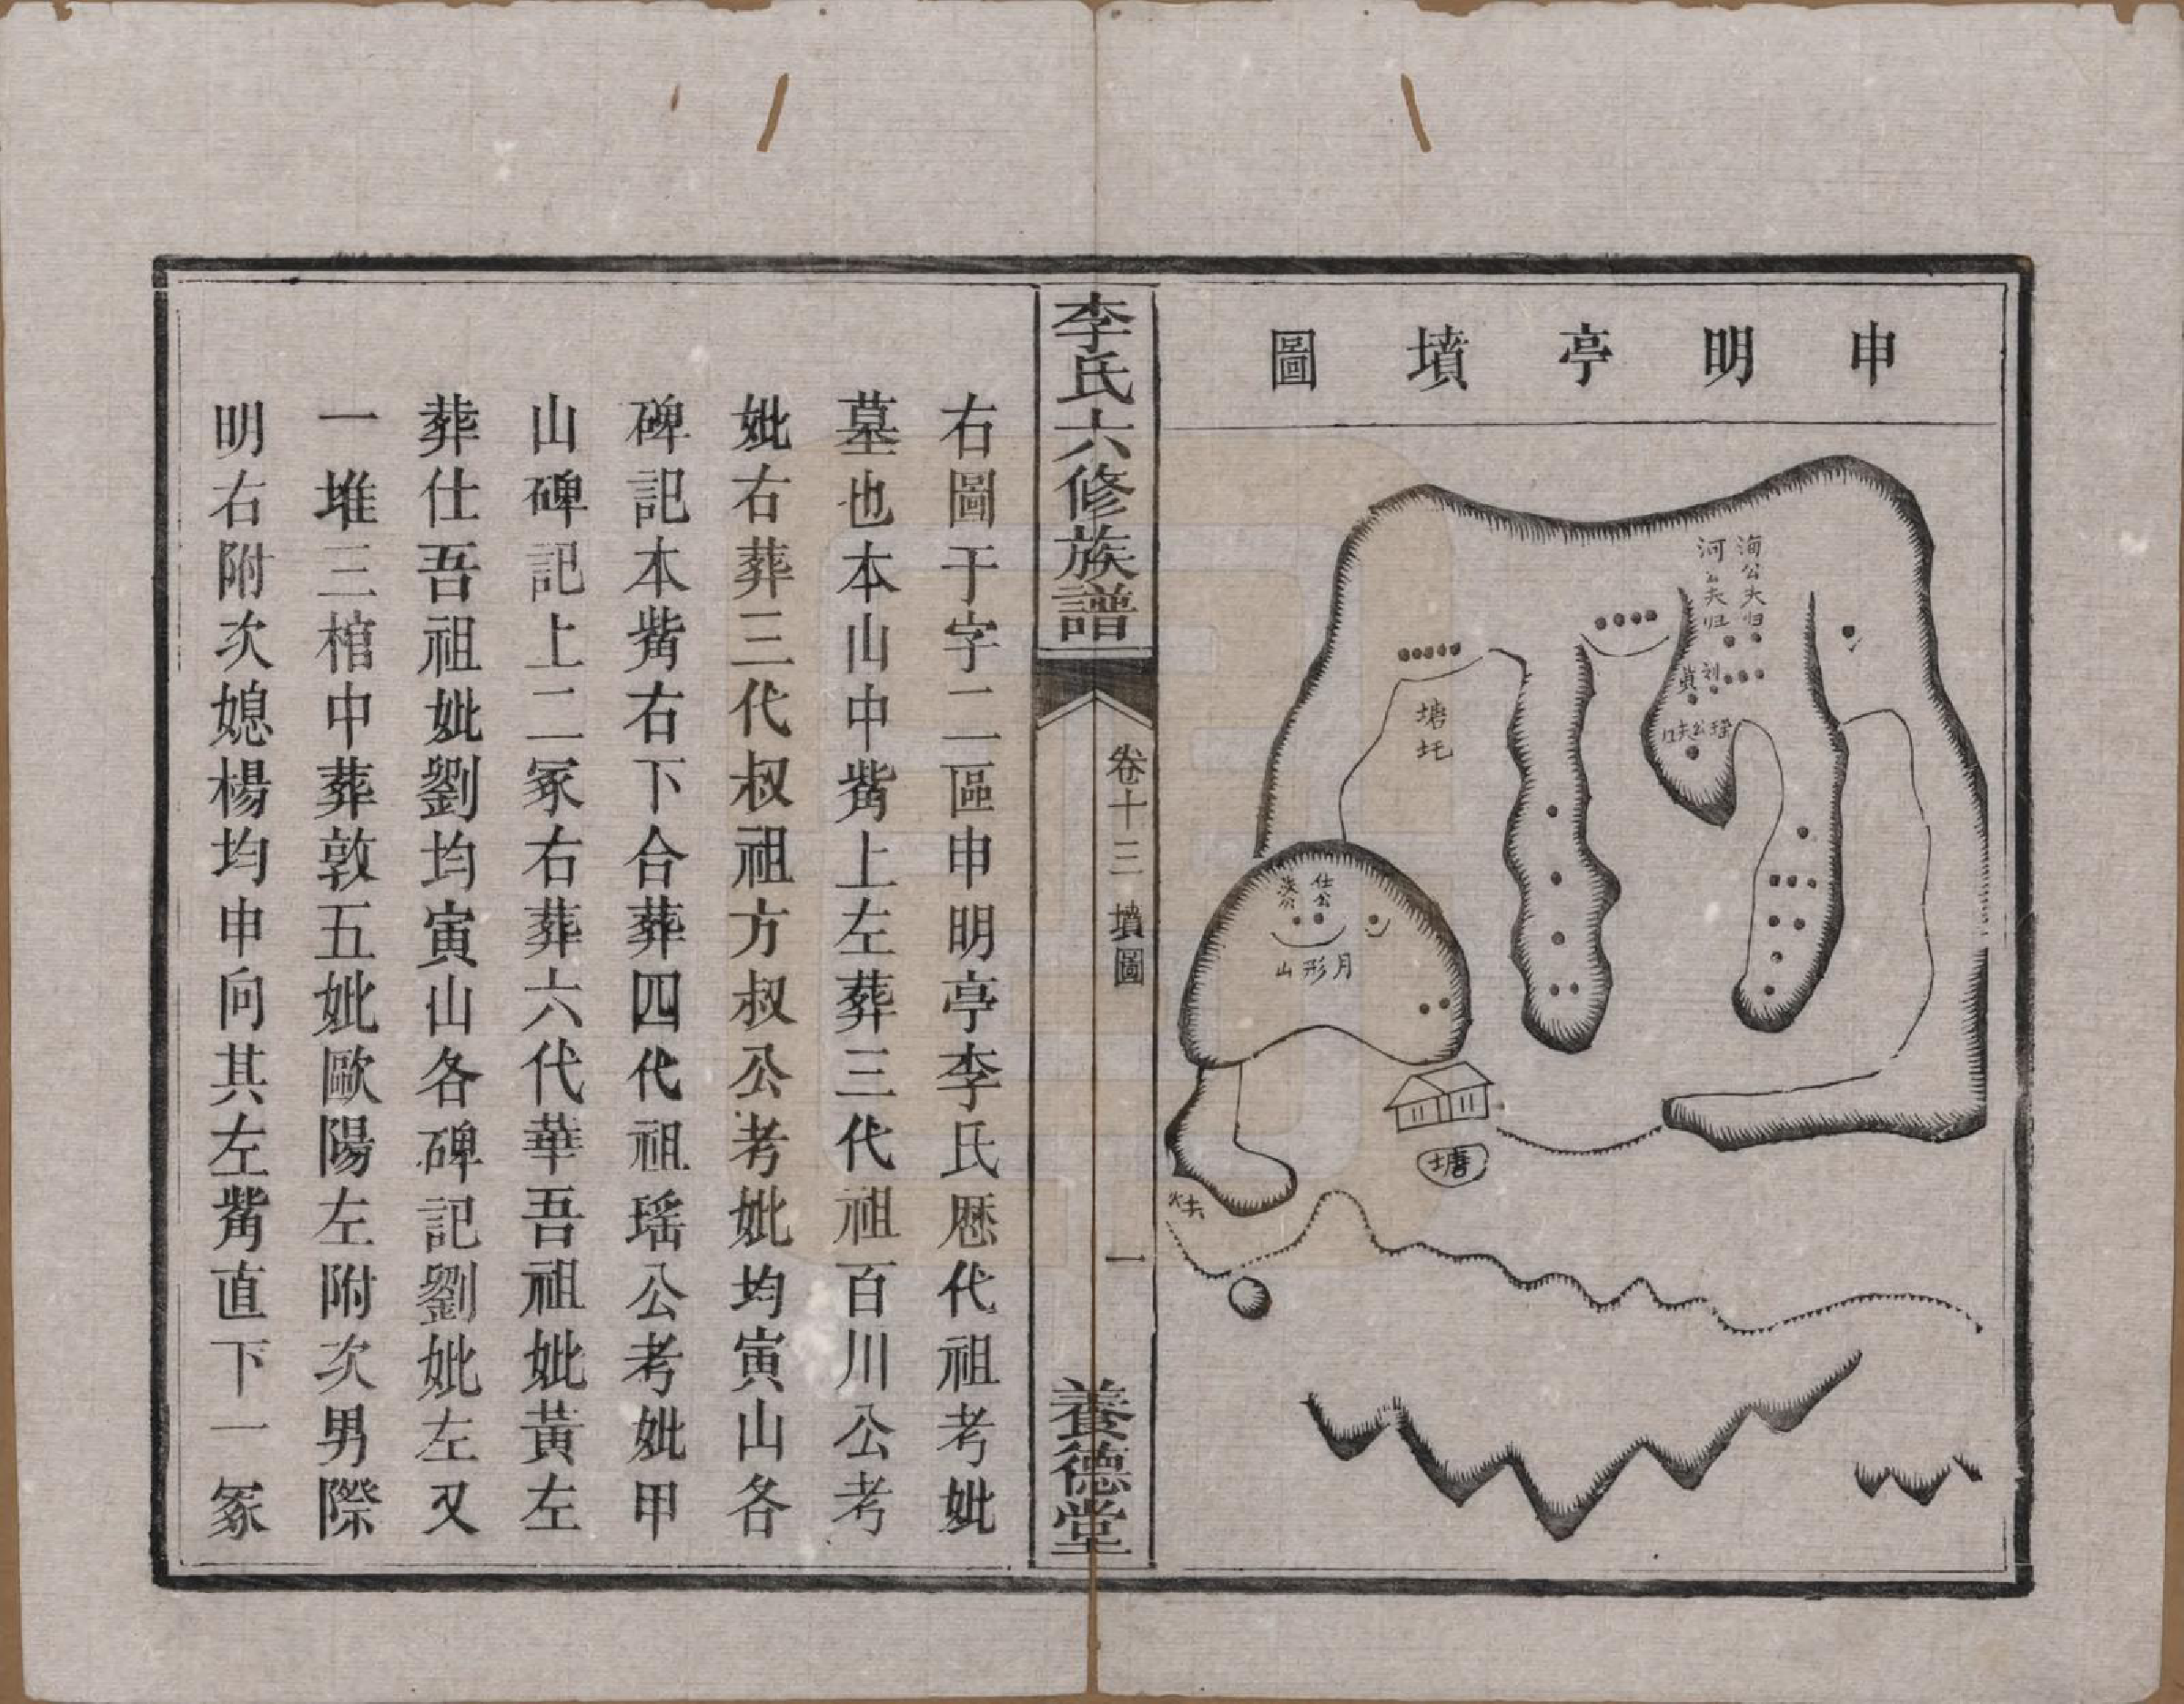 申明亭墳圖
海公夫归
河公夫归
利
貞
塘圫
仕公
月形山
塘
李氏六修族譜
卷十三
墳圖
一
養德堂
右圖于字二區申明亭李氏歷代祖考妣
墓也本山中觜上左葬三代祖百川公考
妣右葬三代叔祖方叔公考妣均寅山各
碑記本觜右下合葬四代祖瑤公考妣甲
山碑記上二冢右葬六代華吾祖妣黃左
葬仕吾祖妣劉均寅山各碑記劉妣左又
一堆三棺中葬敦五妣歐陽左附次男際
明右附次媳楊均申向其左觜直下一冢